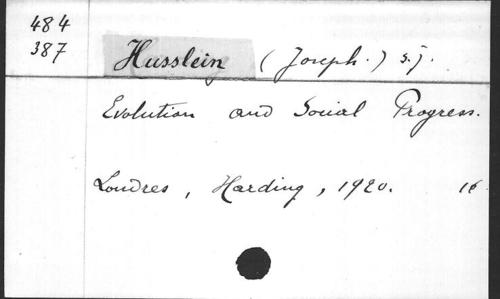 484
387
Husslein (Joseph.) s.j.
Evolution and Social Progress.
Londres, Harding, 1920. 16